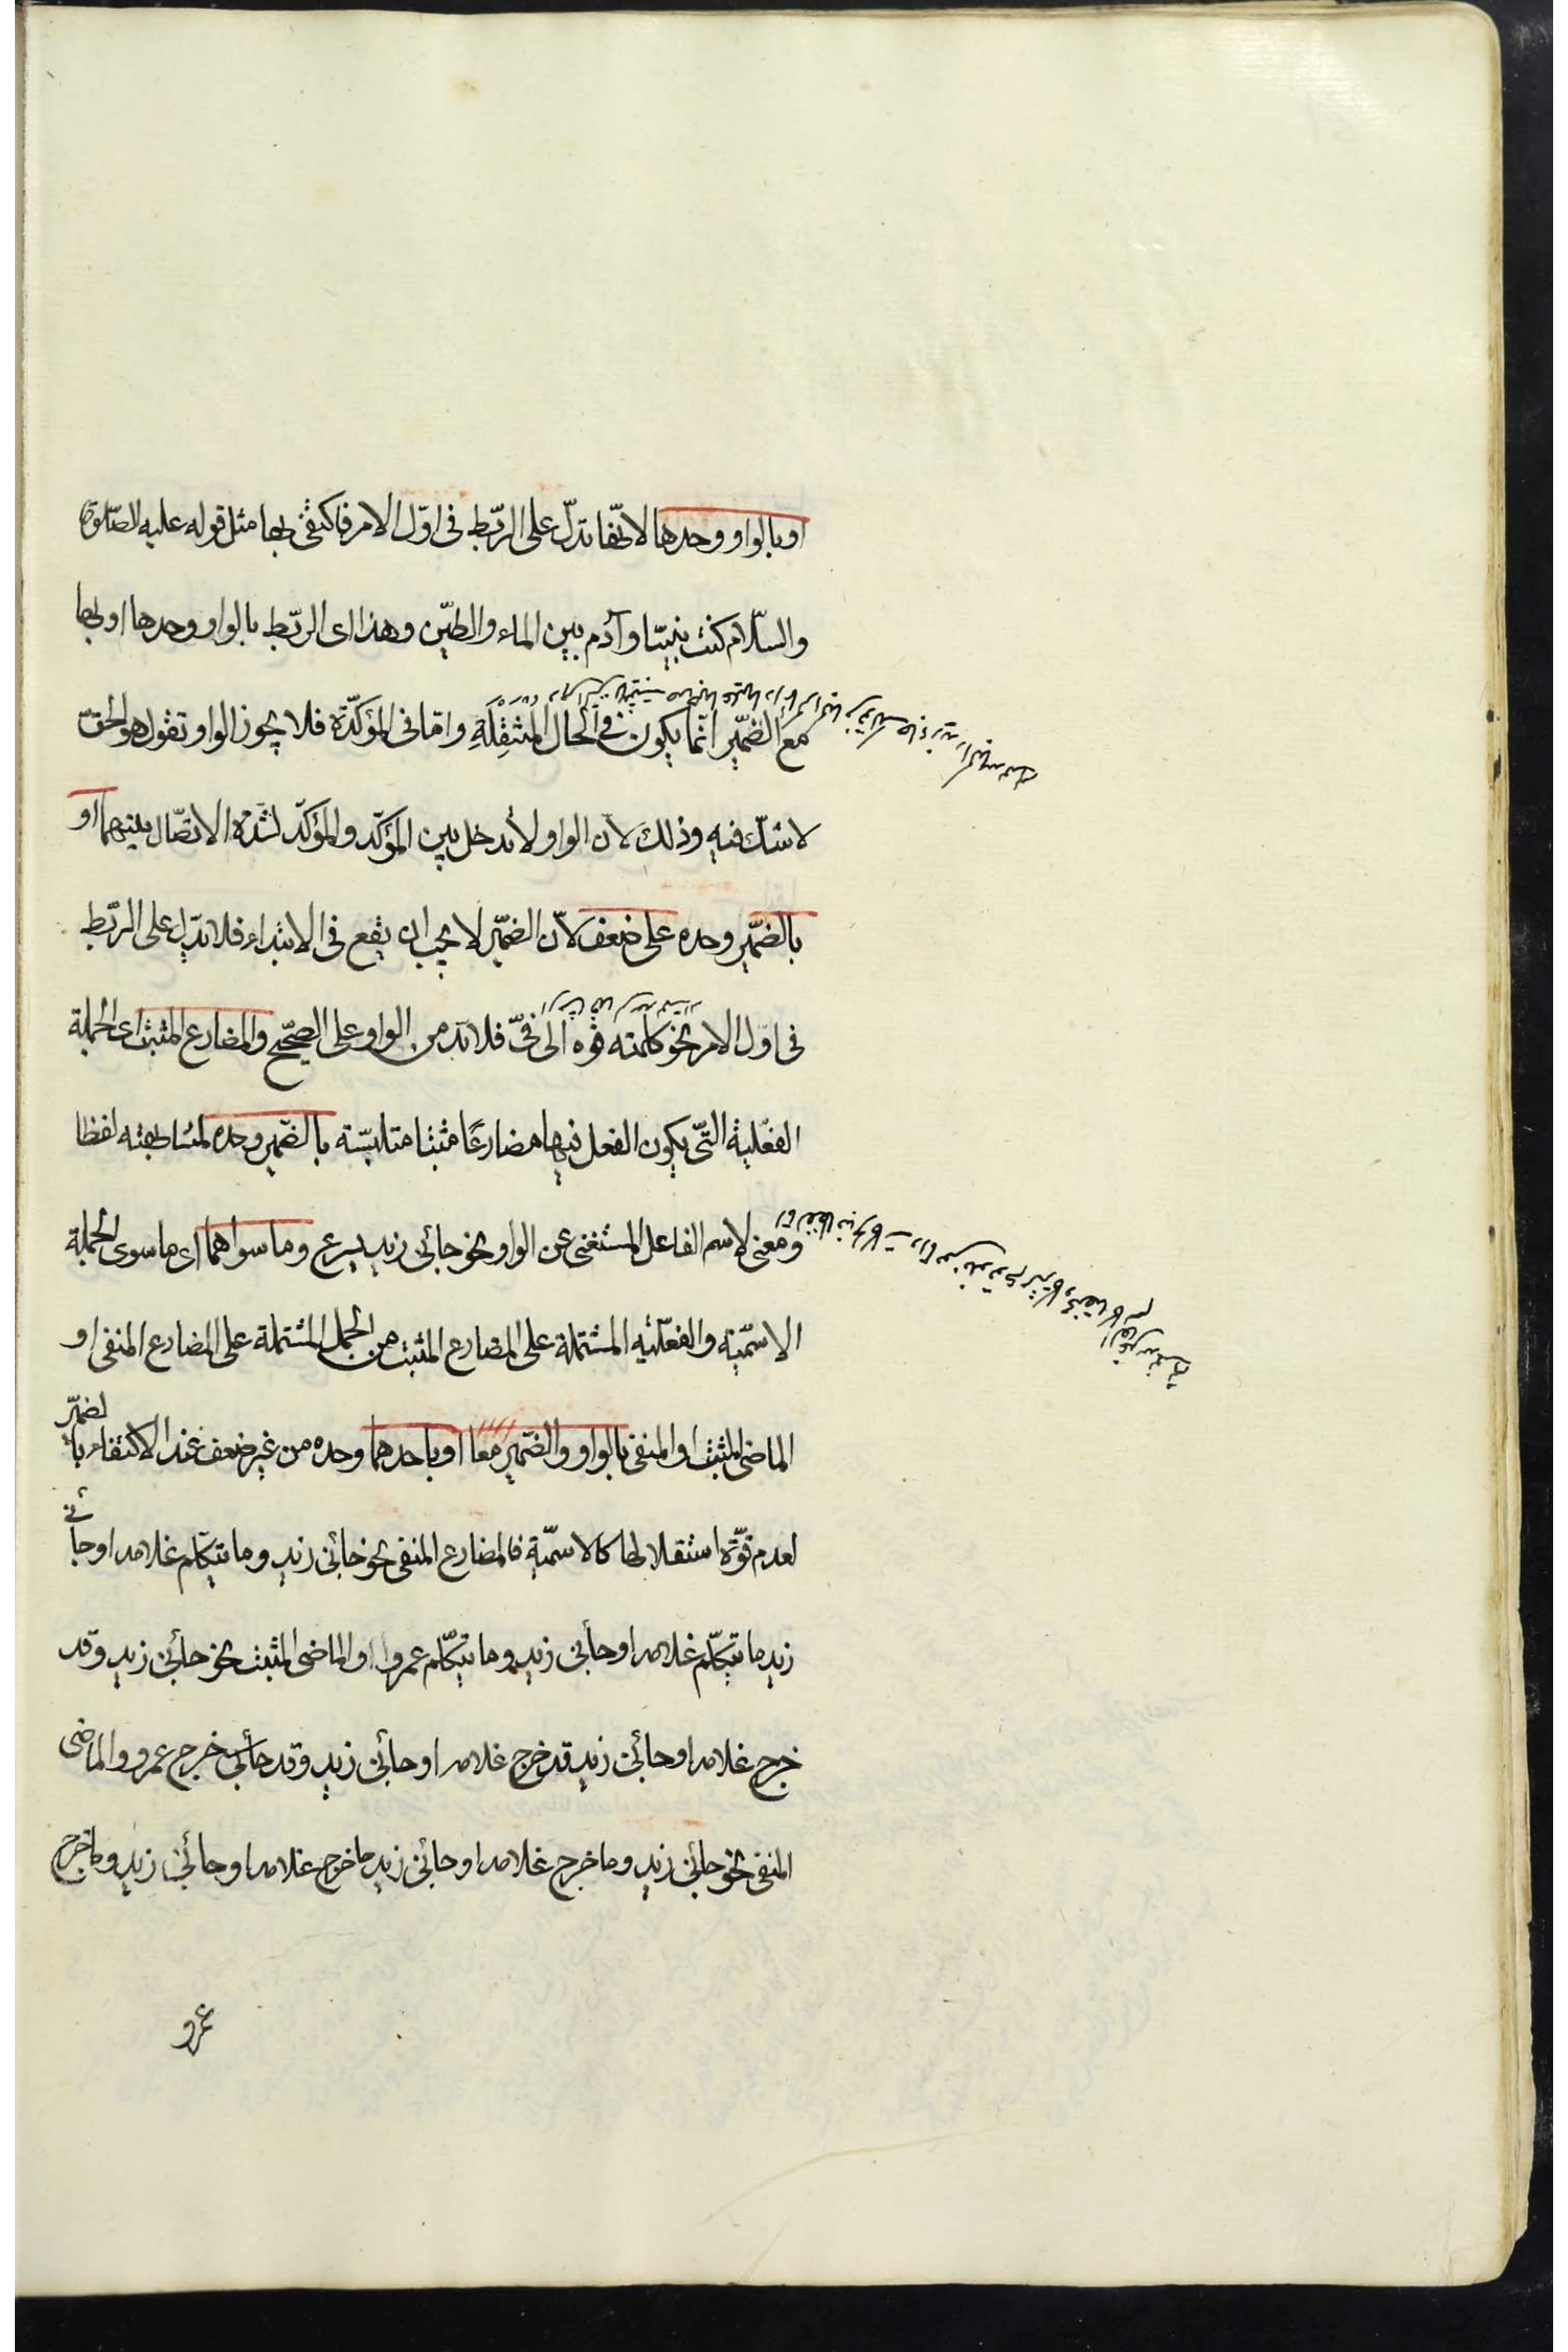 او بالواو وحدها لانّها تدلّ على الرّبط فى اوّل الامر فاكتفى بها مثل قوله عليه الصّلوة
والسّلام كنت نبيّا وآدم بين الماء والطّين وهذا اى الربّط بالواو وحدها او بها
مع الضمّير انّما يكون فى الحال المُنْتَقِلَةِ وامّا فى المؤكدّة فلا يجوز الواو تقول هو الحقّ
لا شكّ فيه وذلك لانّ الواو لا تدخل بين المؤكّد والمؤكّد لشدّة الاتصّال بينهما او
بالضمّير وحده على ضعف لانّ الضمّير لا يجب ان يقع فى الابتداء فلا تدّل على الربّط
فى اوّل الامر نحو كلّمته فوه الى فىّ فلا بدّ من الواو على الصحّيح والمضارع المثبت اى الجملة
الفعّلية التّى يكون الفعل فيها مضارعًا مثبتا متلبسّة بالضّمير وحده لمشابهته لفظا
ومعنى لاسم الفاعل المستغنى عن الواو نحو جائنى زيد يسرع وما سواهما اى ما سوى الجملة
الاسمّية والفعّليه المشتملة على المضارع المثبت من الجمل المشتملة على المضارع المنفى او
الماضى المثبت او المنفى بالواو والضّمير معا او باحدهما وحده من غير ضعف عند الاكتفاء بالضمّير
لعدم قوّة استقلالها كالاسمّية فالمضارع المنفى نحو جائنى زيد وما يتكلّم غلامه او جائنى
زيد ما يتكلّم غلامه او جائنى زيد وما يتكلّم عمرو او الماضى المثبت نحو جائنى زيد وقد
خرج غلامه او جائنى زيد قد خرج غلامه او جائنى زيد وقد خرج عمرو والماضى
المنفى نحو جائنى زيد وما خرج غلامه او جائنى زيد ما خرج غلامه او جائنى زيد وما خرج
عمرو